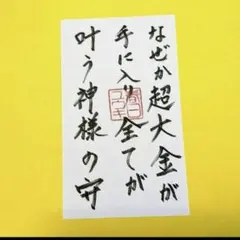 なぜか超大金が
手に入り全てが
叶う神様の守